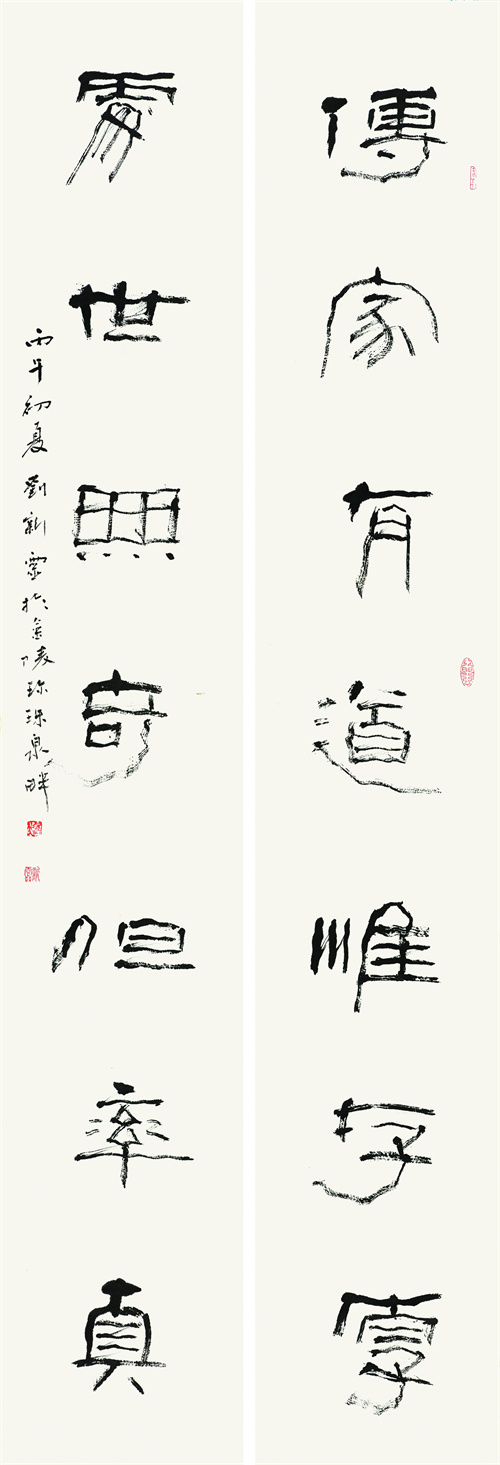 傳家有道惟存厚
處世無奇但率真
丙午初夏 劉新 於金陵珍珠泉畔